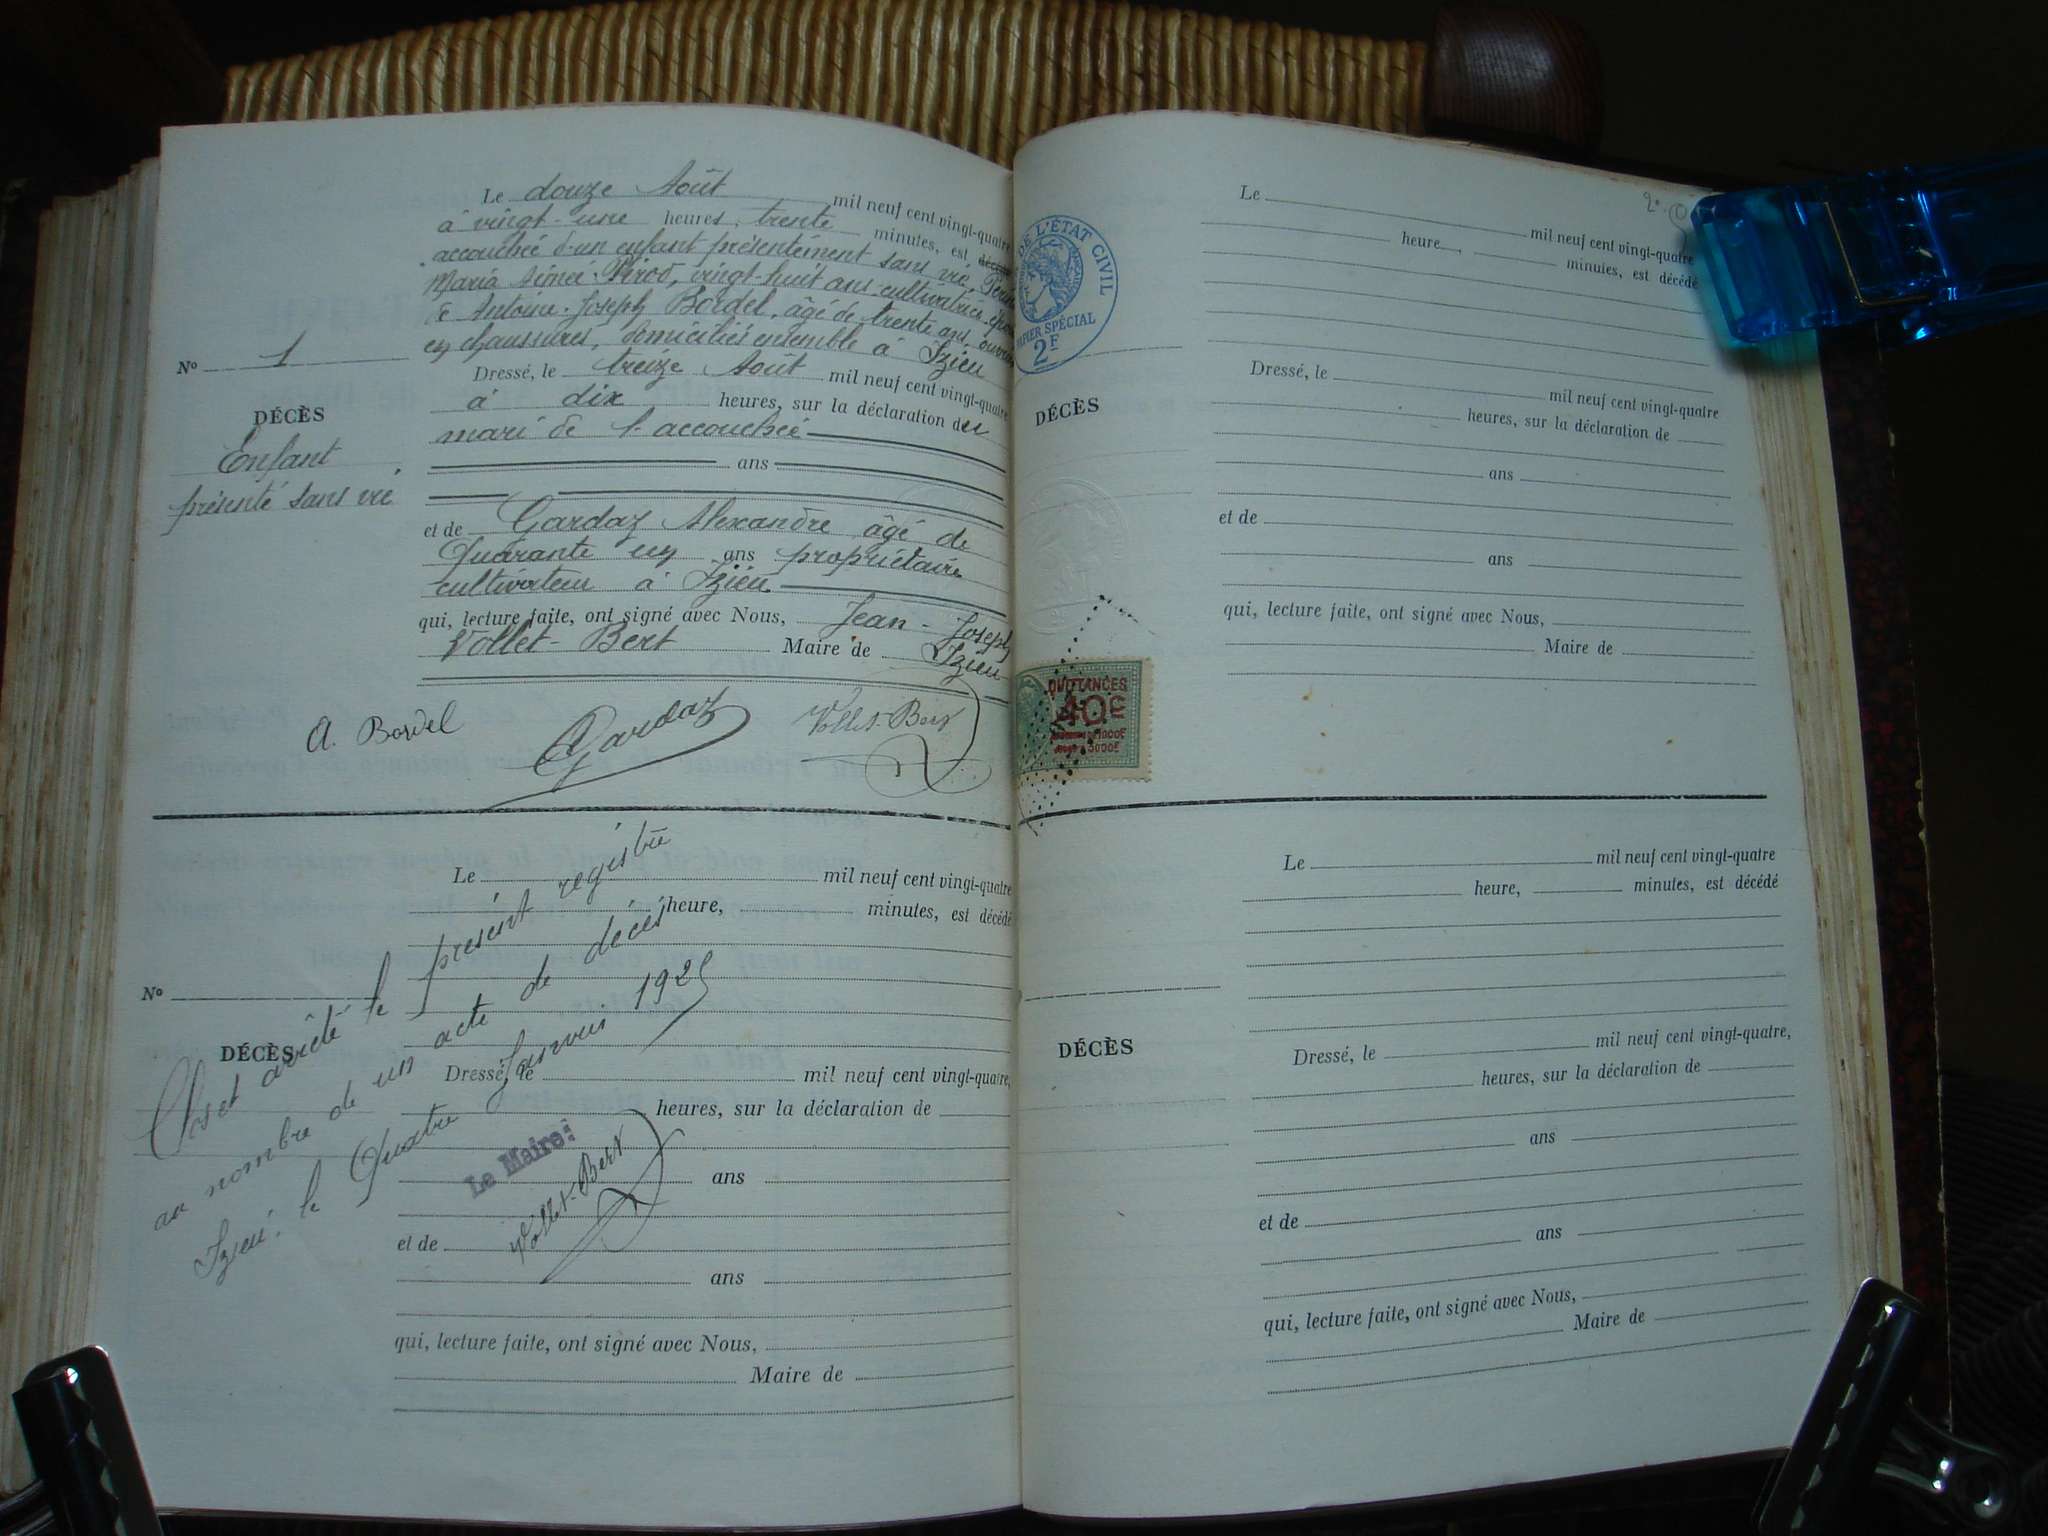 Le douze Août mil neuf cent vingt-quatre
à vingt-une heures trente minutes, est
accouchée d'un enfant présentement sans vie,
Maria Aimée Pirod, vingt-huit ans cultivatrice
de Antoine-Joseph Bordel, âgé de trente ans,
en chaussures, domiciliés ensemble à Izieu
No 1
Dressé, le treize Août mil neuf cent vingt-quatre
à dix heures, sur la déclaration du
DÉCÈS
mari de l'accouchée
Enfant
ans
présenté sans vie
et de Gardaz Alexandre âgé de
Quarante un ans propriétaire
cultivateur à Izieu
qui, lecture faite, ont signé avec Nous, Jean-Joseph
Vollet-Bert Maire de Izieu
A. Bordel Gardaz Vollet-Bert
Le mil neuf cent vingt-quatre
heure, minutes, est décédé
No
DÉCÈS
Dressé, le mil neuf cent vingt-quatre,
heures, sur la déclaration de
ans
et de
ans
qui, lecture faite, ont signé avec Nous,
Maire de
Clos et arrêté le présent registre
au nombre de un acte de décès
Izieu, le Quatre Janvier 1925
Le Maire:
Vollet-Bert
2e
Le mil neuf cent vingt-quatre
heure, minutes, est décédé
DE L'ÉTAT CIVIL
PAPIER SPÉCIAL
2F
Dressé, le mil neuf cent vingt-quatre
heures, sur la déclaration de
DÉCÈS
ans
et de
ans
qui, lecture faite, ont signé avec Nous,
Maire de
QUITTANCES
40c
Le mil neuf cent vingt-quatre
heure, minutes, est décédé
DÉCÈS
Dressé, le mil neuf cent vingt-quatre,
heures, sur la déclaration de
ans
et de
ans
qui, lecture faite, ont signé avec Nous,
Maire de